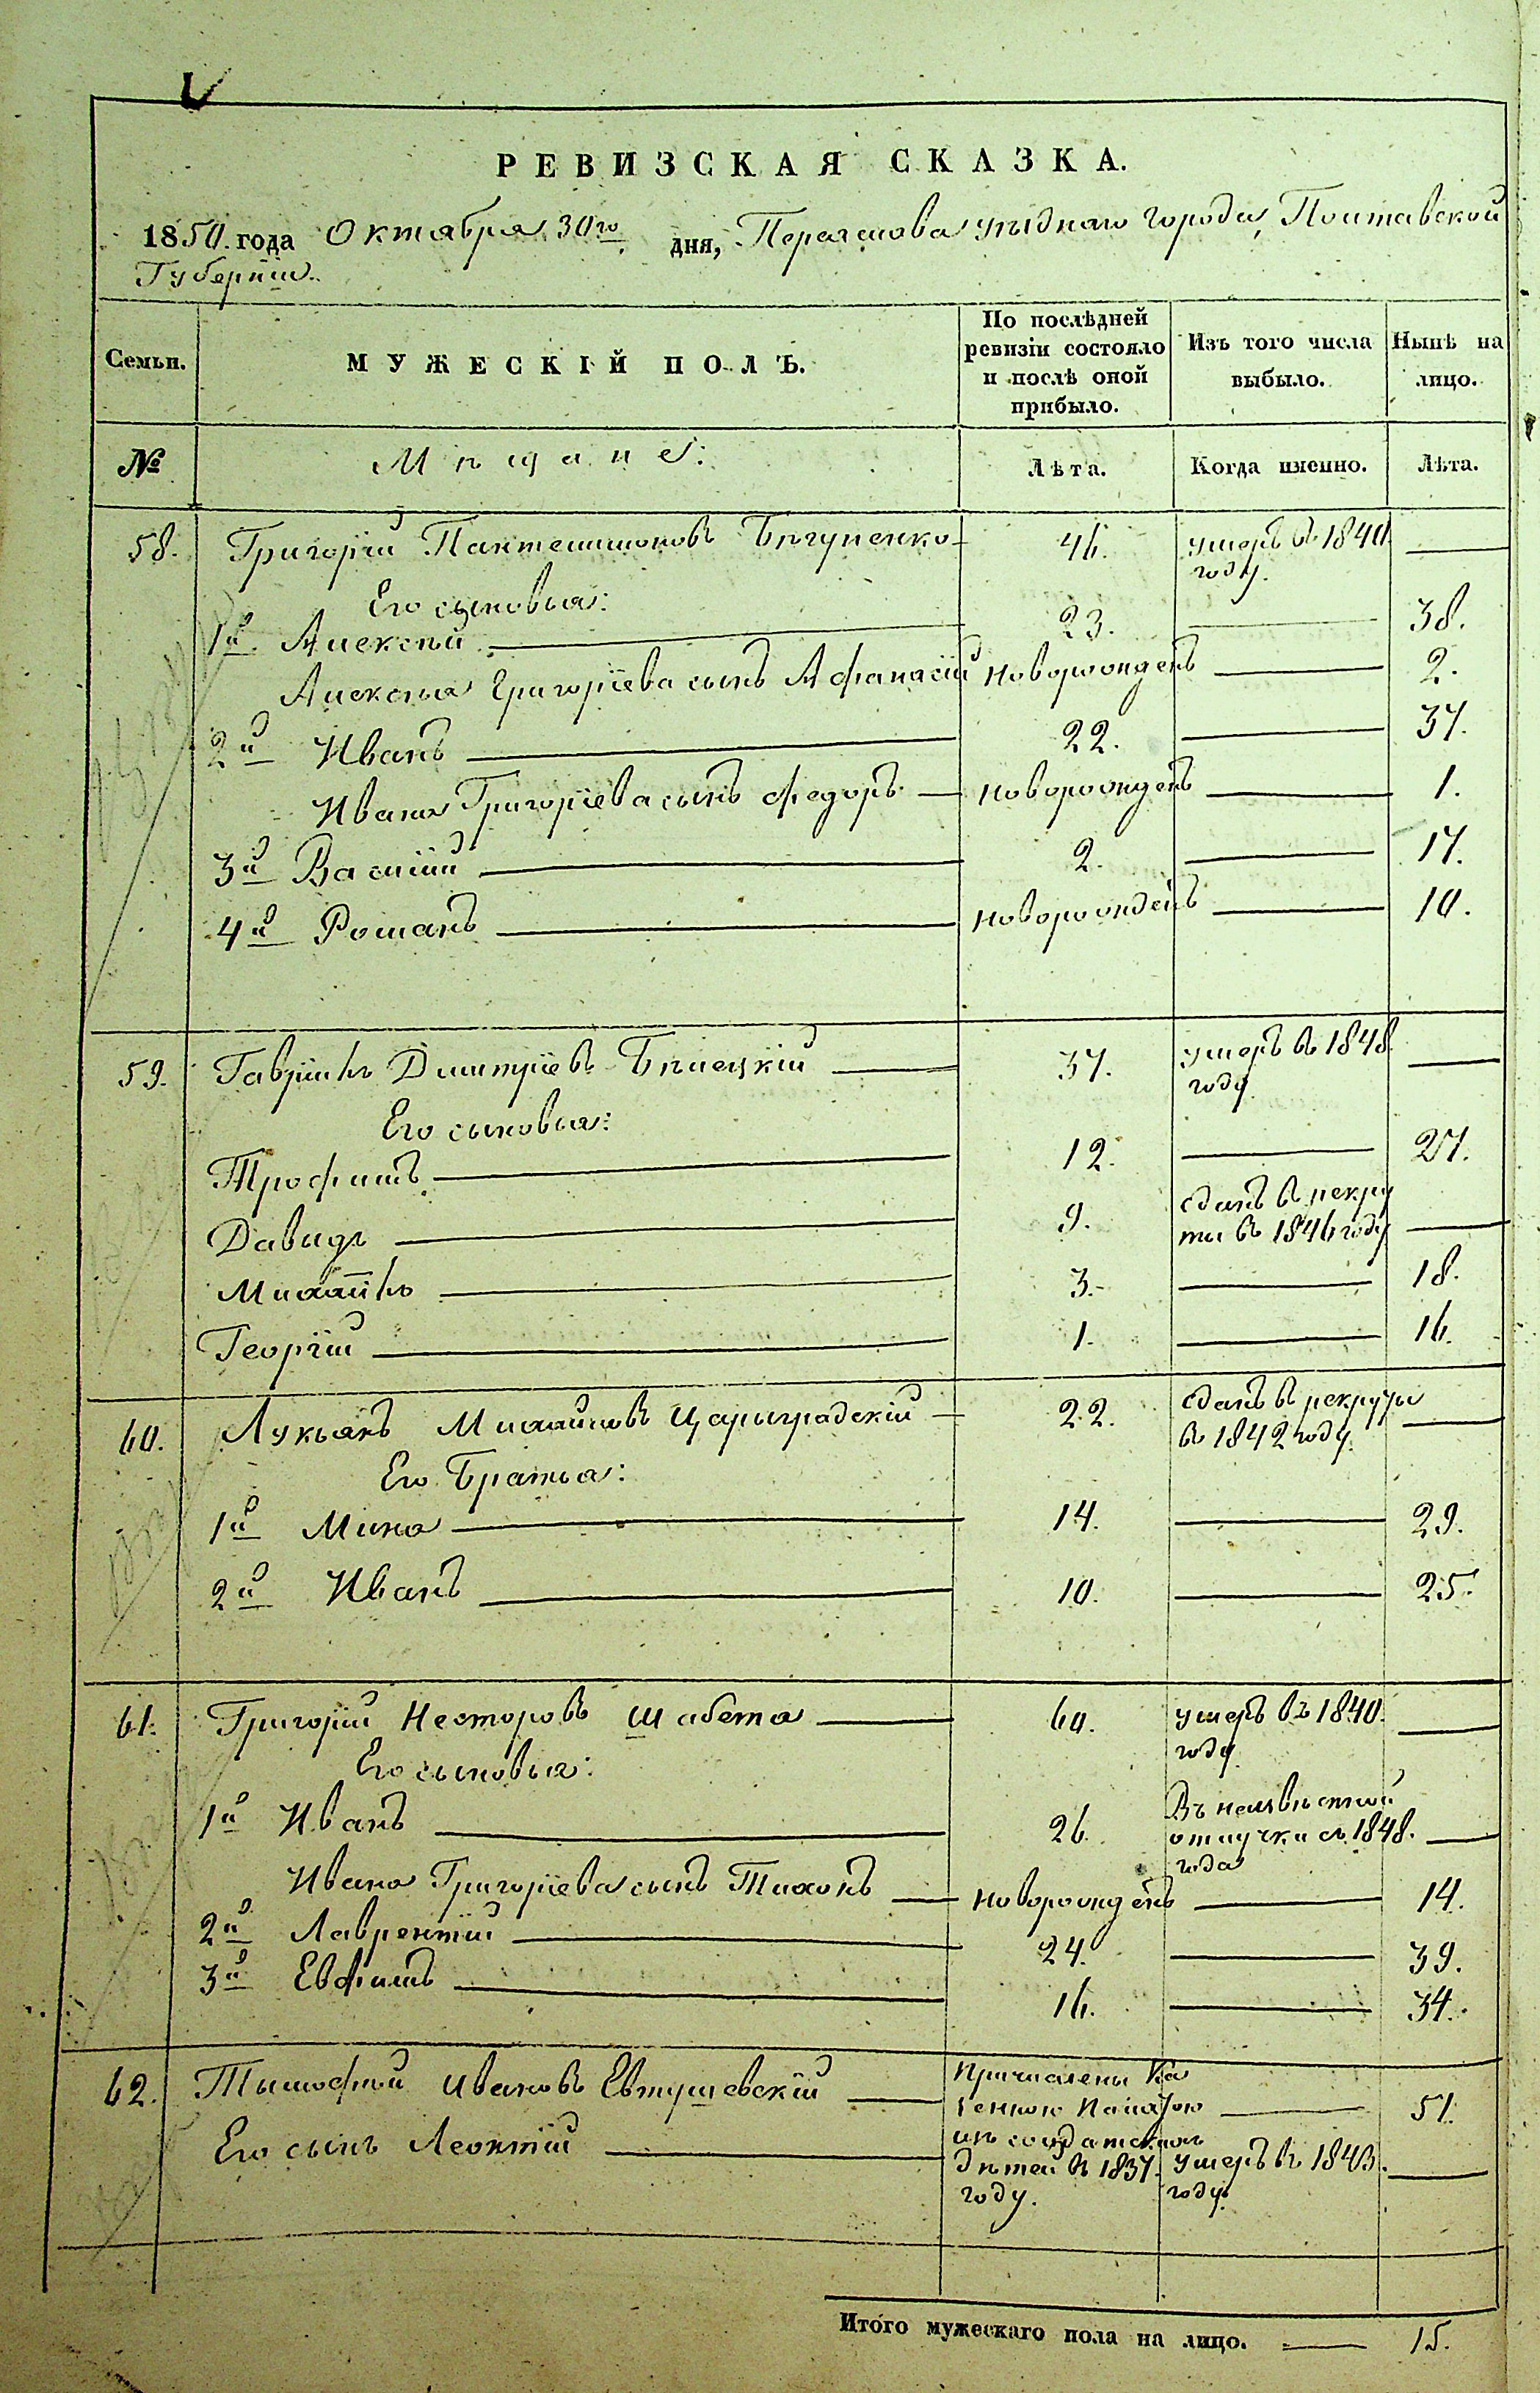 РЕВИЗСКАЯ СКАЗКА.
1850. года Октября 30го дня, Переяслова уѣзднаго города, Полтавской
Губерніи.
Семьи. МУЖЕСКІЙ ПОЛЪ. По послѣдней ревизіи состояло и послѣ оной прибыло. Изъ того числа выбыло. Нынѣ на лицо.
№ Мѣщане: Лѣта. Когда именно. Лѣта.
58. Григорій Пантелимоновъ Бѣгуненко 46. умеръ въ 1840. году.
Его сыновья:
1й Алексѣй 23. 38.
Алексѣя Григоріева сынъ Афанасій новорожденъ 2.
2й Иванъ 22. 37.
Ивана Григоріева сынъ Федоръ новорожденъ 1.
3й Василій 2. 17.
4й Романъ новорожденъ 10.
59. Гавріилъ Дмитріевъ Бѣлецкій 37. умеръ въ 1848. году
Его сыновья:
Трофимъ 12. 27.
Давыдъ 9. сданъ въ рекру
ты въ 1846 году
Михаилъ 3. 18.
Георгій 1. 16.
60. Лукьянъ Михайловъ Цариградскій 22. сданъ въ рекруты
въ 1842 году.
Его Братья:
1й Мина 14. 29.
2й Иванъ 10. 25.
61. Григорій Несторовъ Шабета 60. умеръ въ 1840. году
Его сыновья:
1й Иванъ 26. Въ неизвѣстной
отлучки съ 1848.
года
Ивана Григоріева сынъ Тихонъ новорожденъ 14.
2й Лаврентій 24. 39.
3й Евфимъ 16. 34.
62. Тимофѣй Ивановъ Евтушевскій Причислены Ка
зенною Палатою 51.
изъ солдатскихъ
Его сынъ Леонтій дѣтей въ 1837. умеръ въ 1843.
году. году.
Итого мужескаго пола на лицо. 15.